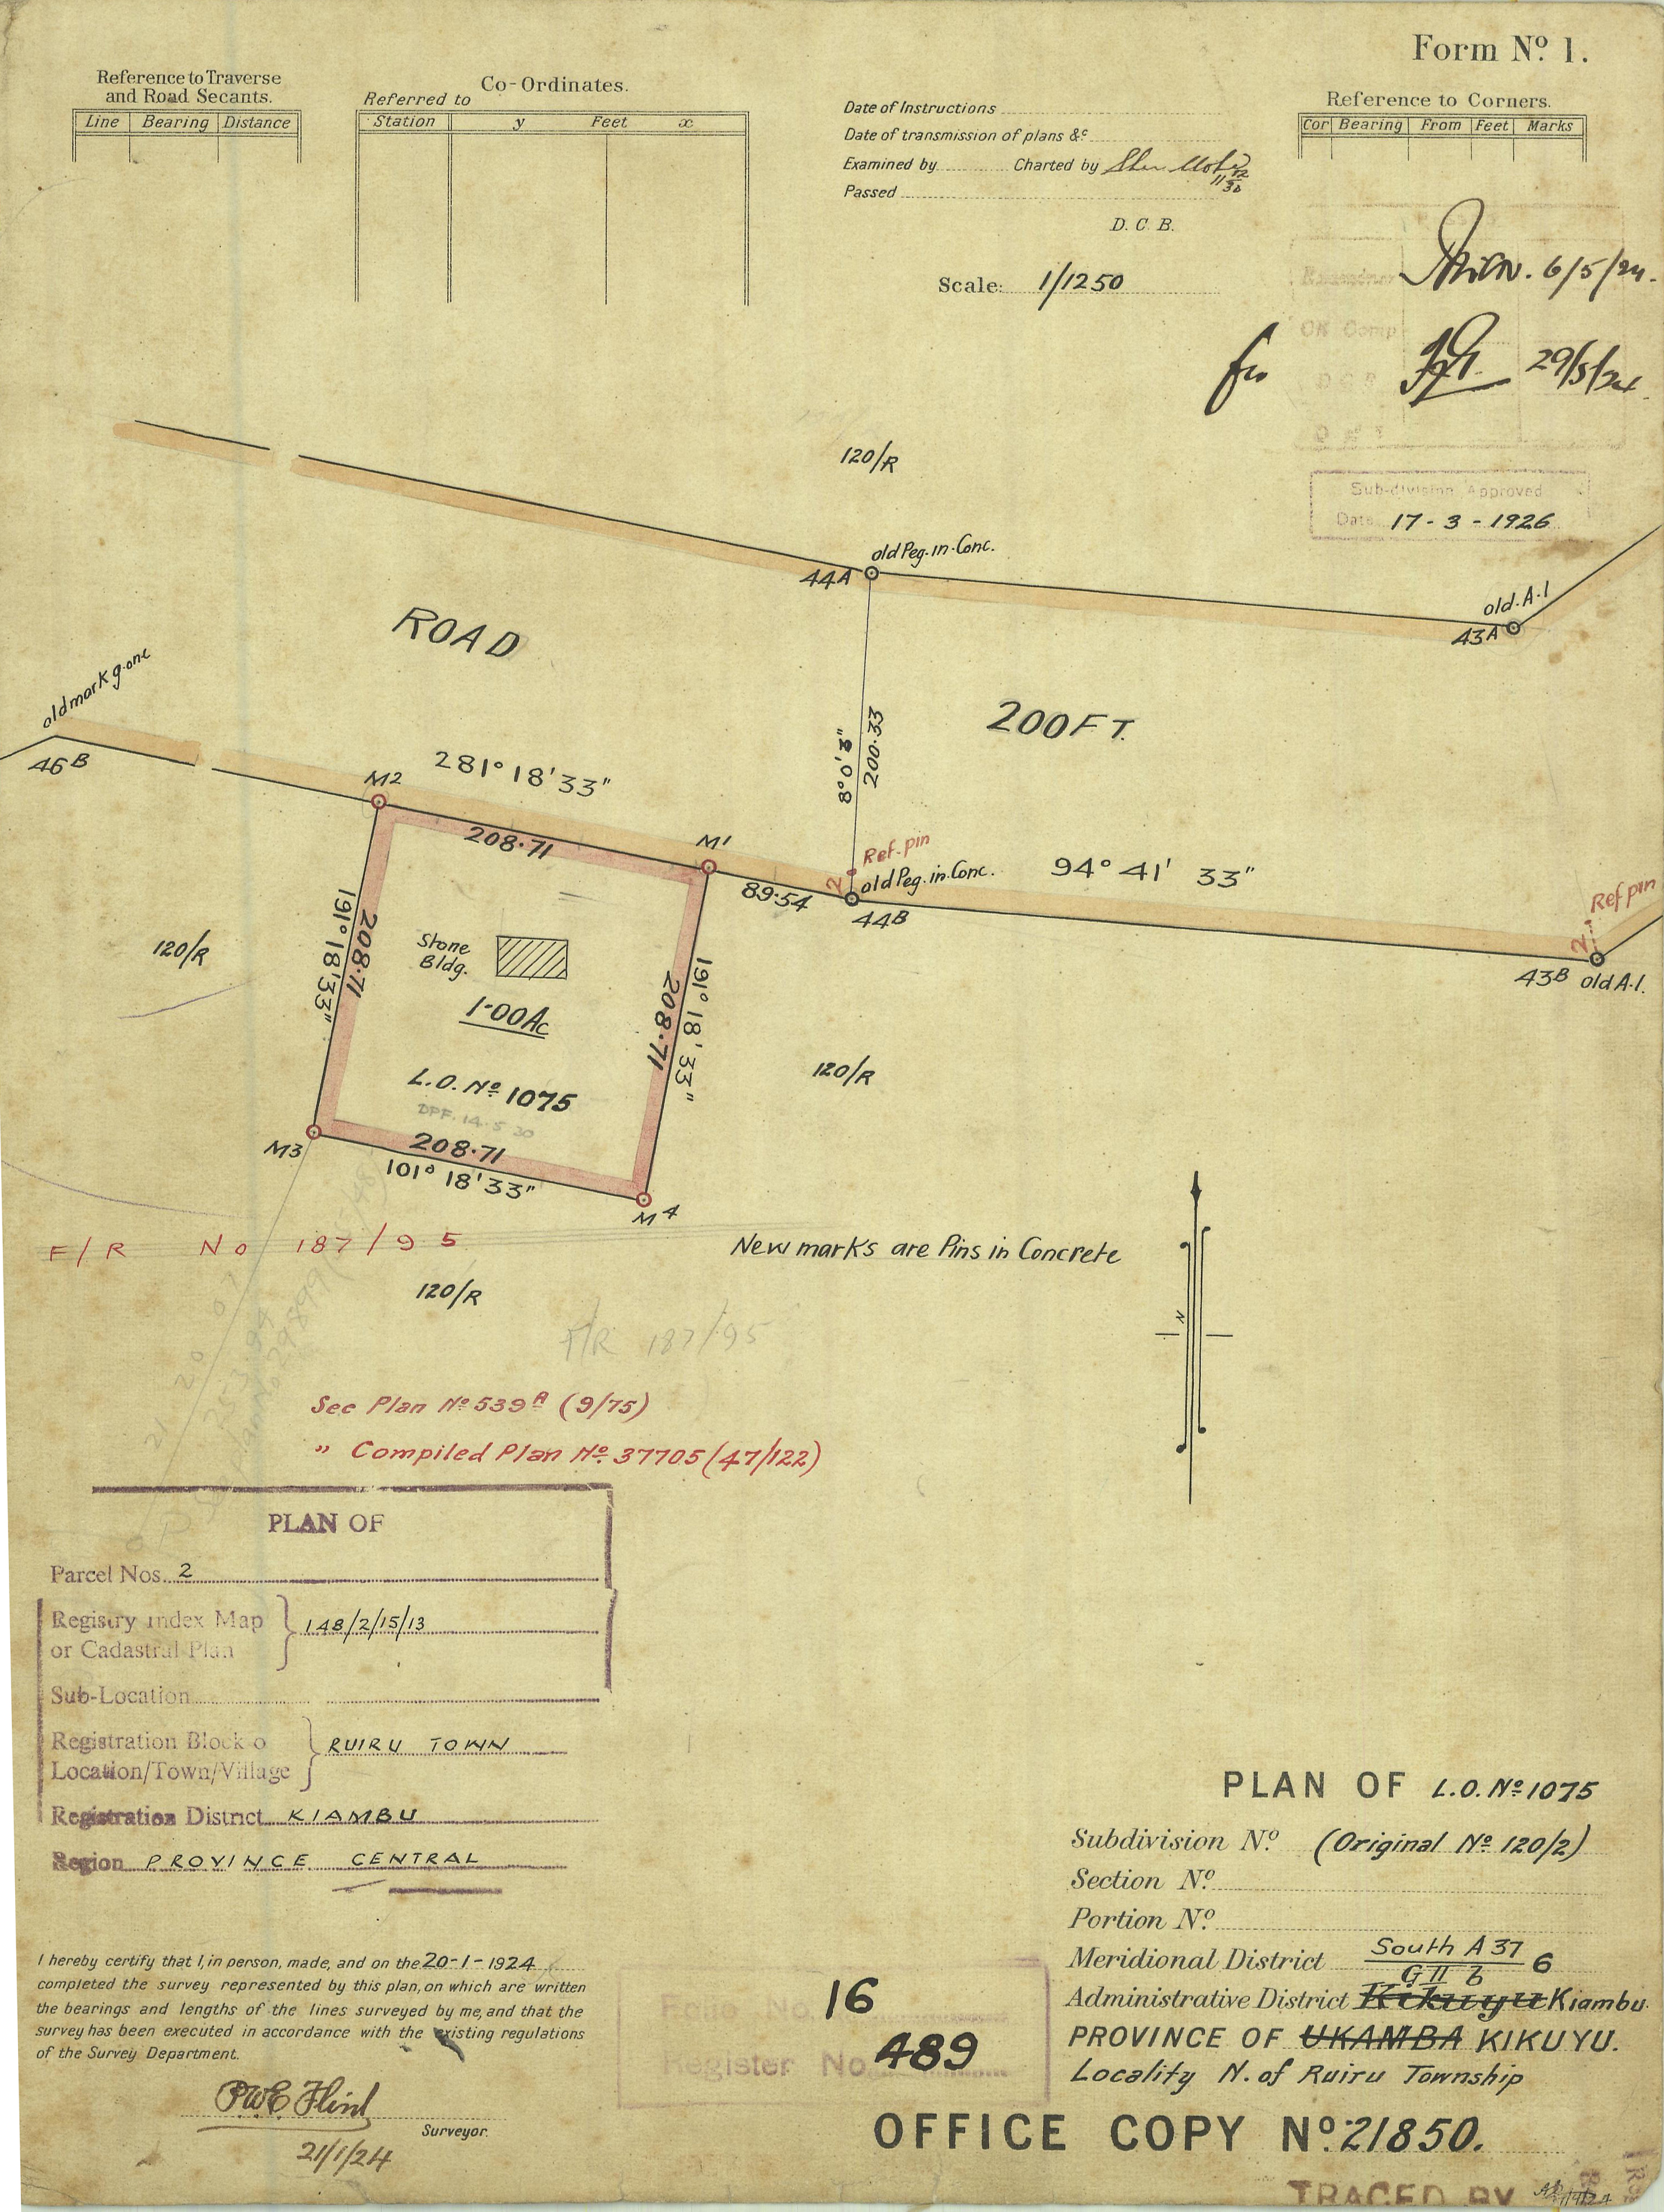 Form Nº 1.
Reference to Traverse
and Road Secants.
Line Bearing Distance
Co-Ordinates.
Referred to
Station y Feet x
Date of Instructions
Date of transmission of plans &c
Examined by Charted by
Passed
D. C. B.
Scale: 1/1250
Reference to Corners.
Cor Bearing From Feet Marks
6/5/24.
for
29/5/24
OK Comp
Sub-division Approved
Date 17-3-1926
120/R
old Peg. in. Conc.
44A
old. A.1
43A
ROAD
200 FT.
old mark gone
46B
M2
281° 18' 33"
208.71
M1
89.54
8° 0' 3"
200.33
Ref. pin
2
old Peg. in. Conc.
44B
94° 41' 33"
Ref pin
2
43B old A.1.
120/R
191° 18' 33"
208.71
Stone
Bldg.
1.00 Ac
L.O. Nº 1075
DPF. 14.5.30
208.71
191° 18' 33"
120/R
M3
208.71
101° 18' 33"
M4
F/R No 187/95
120/R
New marks are Pins in Concrete
N
F/R 187/95
See Plan Nº 539A (9/75)
" Compiled Plan Nº 37705 (47/122)
PLAN OF
Parcel Nos. 2
Registry Index Map
or Cadastral Plan
148/2/15/13
Sub-Location
Registration Block o
Location/Town/Village
RUIRU TOWN
Registration District KIAMBU
Region PROVINCE CENTRAL
I hereby certify that I, in person, made, and on the 20-1-1924
completed the survey represented by this plan, on which are written
the bearings and lengths of the lines surveyed by me, and that the
survey has been executed in accordance with the existing regulations
of the Survey Department.
PWE Flint
Surveyor.
21/1/24
16
Register No. 489
PLAN OF L.O. Nº 1075
Subdivision Nº (Original Nº 120/2)
Section Nº
Portion Nº
Meridional District South A 37
G II b 6
Administrative District Kikuyu Kiambu.
PROVINCE OF UKAMBA KIKUYU.
Locality N. of Ruiru Township
OFFICE COPY Nº 21850.
TRACED BY